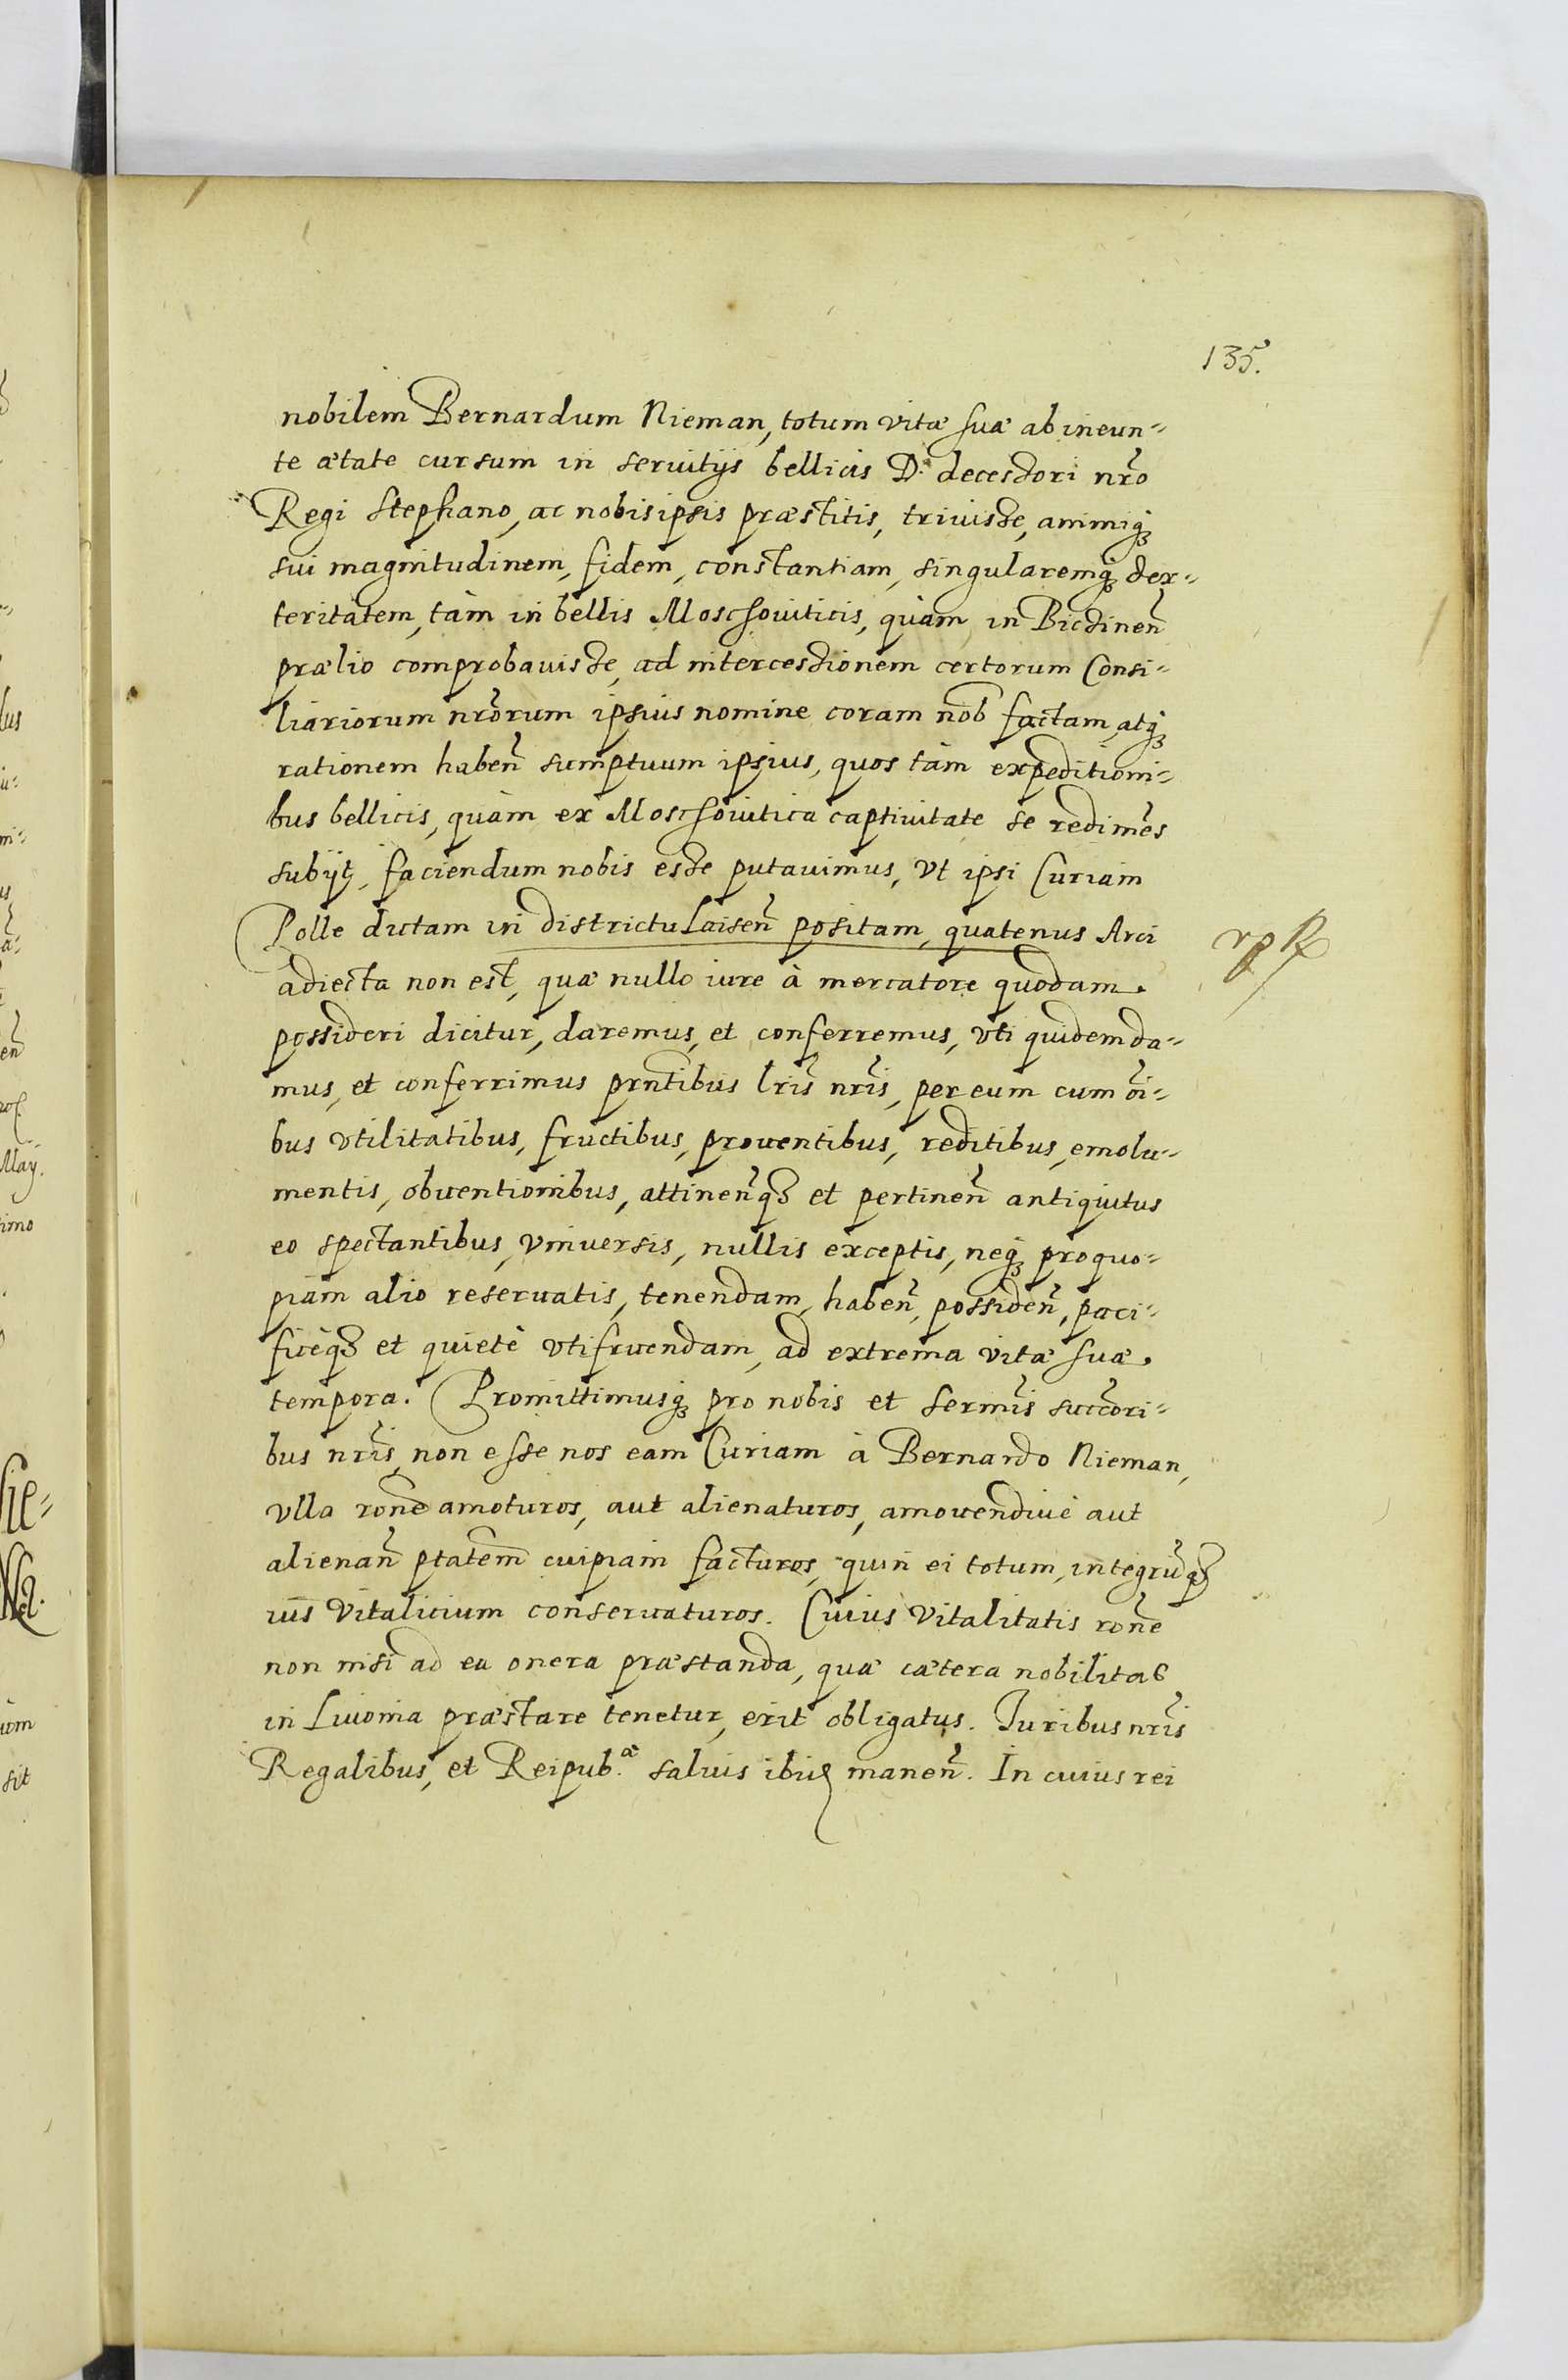 135.
nobilem Bernardum Nieman, totum vitæ suæ ab ineun-
te ætate cursum in seruitijs bellicis D. decessori nr̃o
Regi Stephano, ac nobis ipsis præstitis, triuisse, animiq́ꝫ
sui magnitudinem, fidem, constantiam, singularemq́ꝫ dex-
teritatem, tàm in bellis Moschouiticis, quàm in Biczinen̄
prælio comprobauisse, ad intercessionem certorum Consi-
liariorum nr̃orum ipsius nomine coram nob̃ factam, atq́ꝫ
rationem haben̄ sumptuum ipsius, quos tàm expeditioni-
bus bellicis, quàm ex Moschouitica captiuitate se redimẽs
subijt, faciendum nobis esse putauimus, vt ipsi Curiam
Polle dictam in districtu Laisen̄ positam, quatenus Arci
adiecta non est, quæ nullo iure à mercatore quodam
possideri dicitur, daremus, et conferremus, vti quidem da-
mus, et conferrimus pr̃ntibus lr̃is nr̃is, per eum cum oĩ-
bus vtilitatibus, fructibus, prouentibus, reditibus, emolu-
mentis, obuentionibus, attinen̄qꝫ et pertinen̄ antiquitus
eo spectantibus, vniuersis, nullis exceptis, neq́ꝫ pro quo-
piam alio reseruatis, tenendam, haben̄, possiden̄, paci-
ficèqꝫ et quietè vtifruendam, ad extrema vitæ suæ
tempora. Promittimusq́ꝫ pro nobis et serm̃is succẽori-
bus nr̃is, non esse nos eam Curiam à Bernardo Nieman,
vlla roñe amoturos, aut alienaturos, amouendiuè aut
alienan̄ ptatem̃ cuipiam facturos, quin ei totum, integrũqꝫ
ius vitalicium conseruaturos. Cuius vitalitatis roñe
non nisi ad ea onera præstanda, quæ cætera nobilitas
in Liuonia præstare tenetur, erit obligatus. Iuribus nr̃is
Regalibus, et Reipub.æ saluis ibidẽ manen̄. In cuius rei